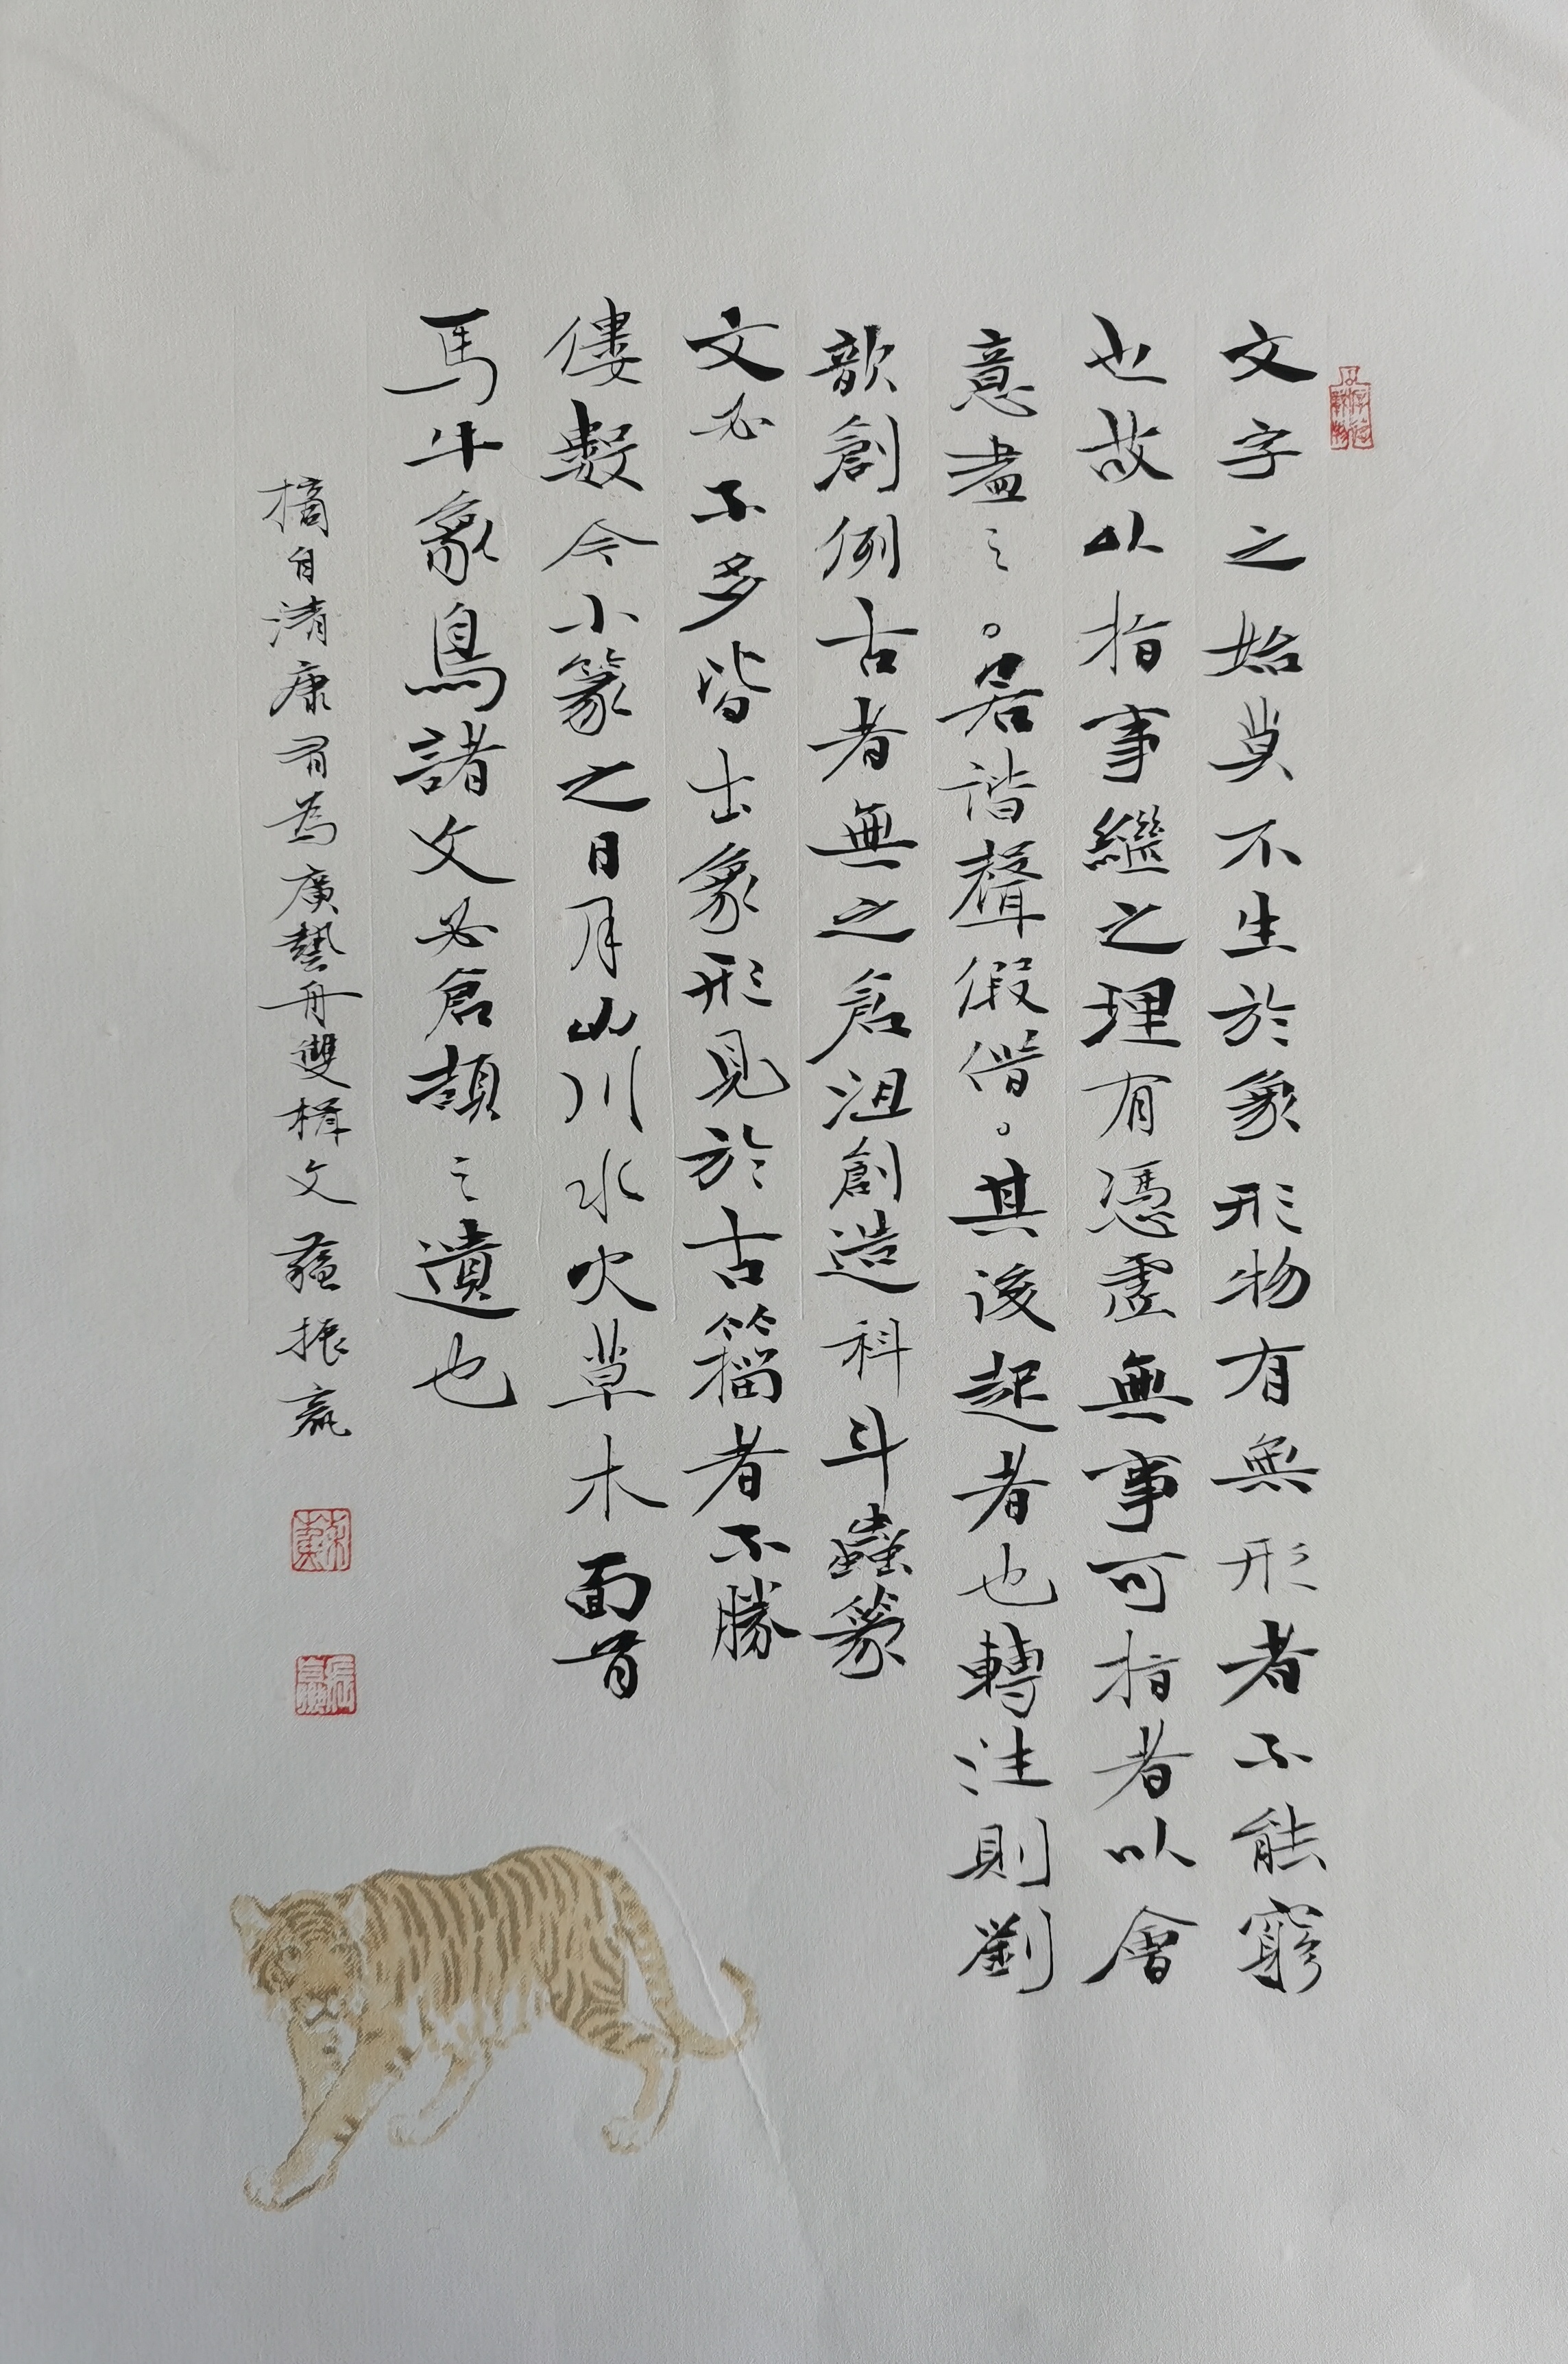 文字之始莫不生於象形物有無形者不能窮
也故以指事繼之理有憑虛無事可指者以會
意盡之。若諧聲假借。其後起者也轉注則劉
歆創例古者無之倉沮創造科斗蟲篆
文必不多皆出象形見於古籀者不勝
僂數今小篆之日月山川水火草木面首
馬牛象鳥諸文必倉頡之遺也
摘自清康有為廣藝舟雙楫文 振